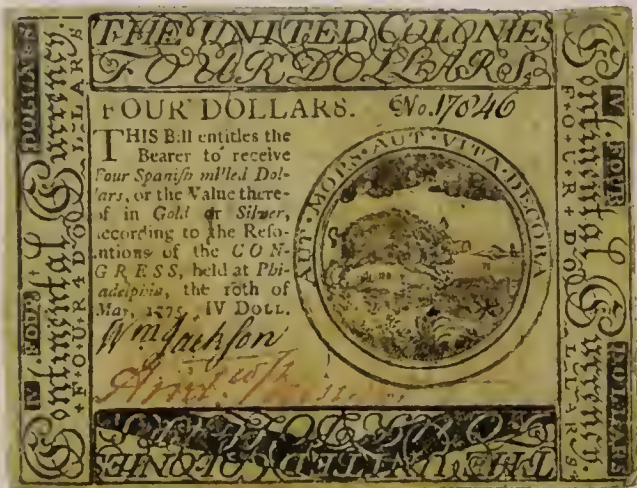 THE UNITED COLONIES
FOUR DOLLARS.
FOUR DOLLARS. No. 17046
THIS Bill entitles the
Bearer to receive
Four Spaniſh milled Dol-
lars, or the Value there-
of in Gold or Silver,
according to the Reſo-
lutions of the CON-
GRESS, held at Phi-
adelphia, the 10th of
May, 1775. IV DOLL.
Wm Jackson
AUT·MORS·AUT·VITA·DECORA
IV FOUR DOLLARS
Continental Currency.
FOUR DOLLARS
Continental Currency.
FOUR DOLLARS
IV FOUR DOLLARS
FOUR DOLLARS
THE UNITED COLONIES